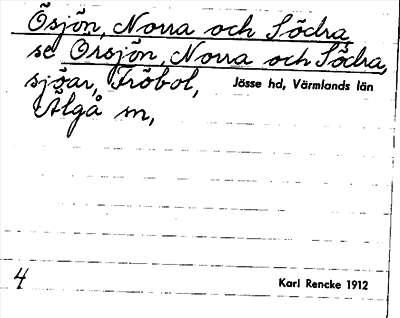 Ösjön, Norra och Södra
se Örsjön, Norra och Södra,
sjöar, Fröbol, Jösse hd, Värmlands län
Älgå sn,
4
Karl Rencke 1912